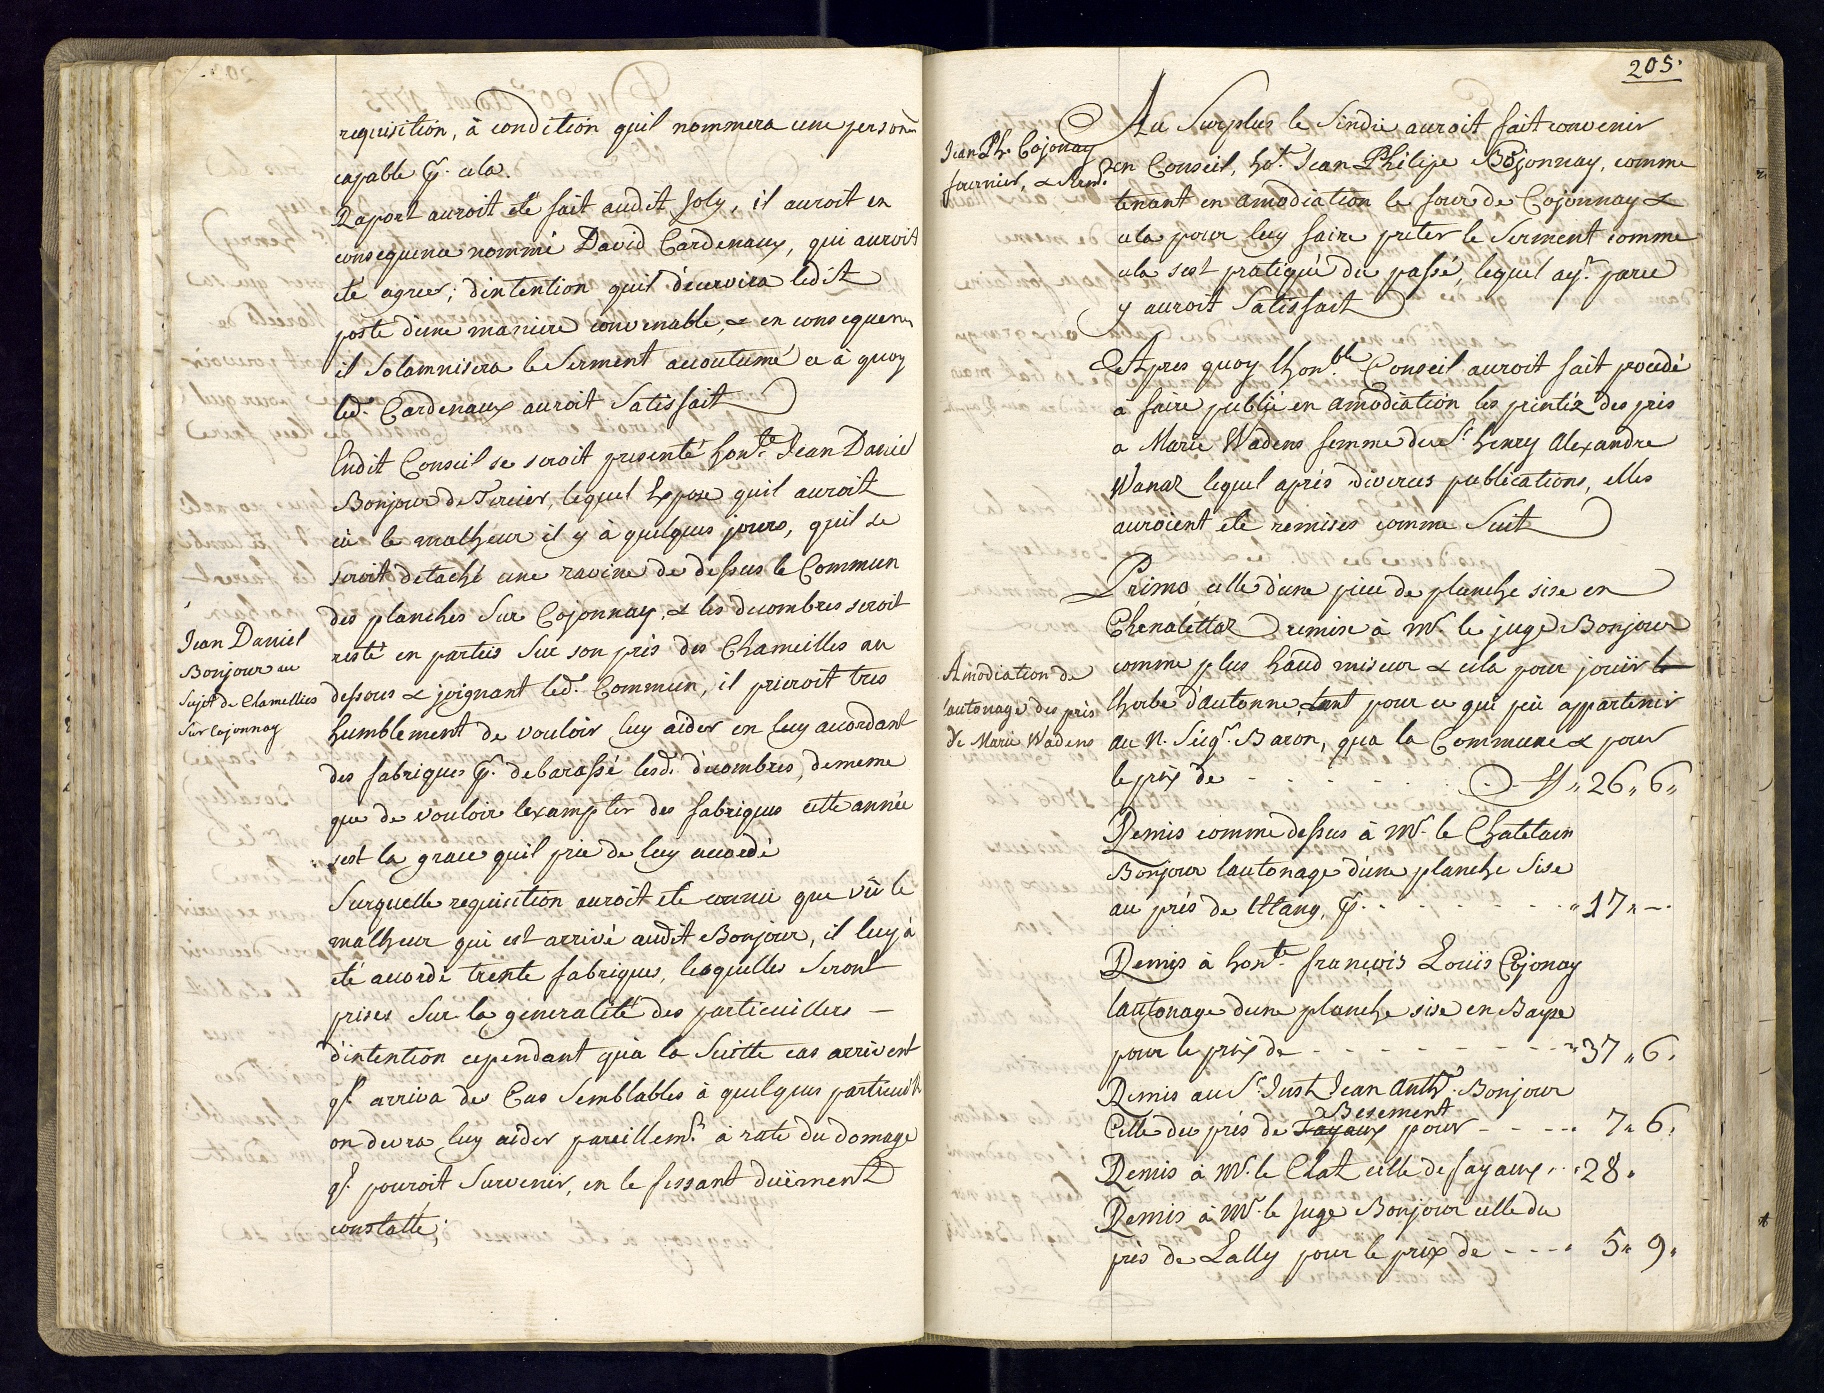 requisition, à condition quil nommera une personne
capable p.r cela.
Raport auroit eté fait audit Joly, il auroit en
consequence nommé David Cardenaux, qui auroit
eté agreer; dintention quil décervira ledit
poste d'une maniere convenable, & en consequence
il Solamnisera le Serment accoutumé ce à quoy
led.t Cardenaux auroit Satisfait
Endit Conseil se seroit presenté hon.te Jean Daniel
Bonjour de Tercier, lequel Expose quil auroit
eü le malheur il y à quelques jours, quil se
seroit detaché une ravine de dessus le Commun
des planches Sur Cojonnay, & les decombres seroit
resté en parties Sur son pris des Chamilles au
dessous & joignant led.t Commun, il prieroit tres
humblement de vouloir luy aider en luy acordant
des fabriques p.r debarassé lesd.t décombres, dememe
que de vouloir lexampter des fabriques cette année
sest la grace quil prie de luy accordé
Surquelle requisition auroit eté connu que vü le
malheur qui est arrivé audit Bonjour, il luy à
eté acordé trente fabriques, lesquelles Seront
prises Sur la generalité des particuillers —
d'intention cependant qu'à la Suitte cas arrivent
q.l arriva des Cas Semblables à quelques particuil.rs
on devra luy aider pareillem.t à rate du domage
q.l pouroit Survenir, en le fessant duëment
constatté;
Jean Daniel
Bonjour au
Sujet de Chamellies
Sur Cojonnay
205.
Au Surplus le Sindic auroit fait convenir
en Conseil, ho.t Jean Philipe Cojonnay, comme
tenant en amodiation le four de Cojonnay &
cela pour luy faire preter le Serment comme
cela sest pratiqué du passé, lequel ay.t paru
y auroit Satisfait
Jean Ph. Cojonay
fournier, & Serm.t
Apres quoy lhon.ble Conseil auroit fait procedé
a faire publié en amodiation les printéz des pris
a Marie Wadens femme du S.r henry Alexandre
Wanaz lequel aprés diverces publications, elles
auroient eté remises comme Suit
Primo celle d'une piece de planche sise en
Chenalettaz remise à M.r le juge Bonjour
comme plus haud miseur & cela pour jouïr le
lherbe d'autonne, tant pour ce qui peü appartenir
au N. Seig.r Baron, qua la Commune & pour
le prix de - - - - ff „ 26 „ 6 „
Amodiation de
lautonage des pris
de Marie Wadens
Remis comme dessus à M.r le Chatelain
Bonjour lautonage d'une planche Sise
au prés de Ettang, p.r - - - - „ 17 „ —
Remis à hon.te françois Louïs Cojonay
lautonage dune planche sise en Baype
pour le prix de - - - - „ 37 „ 6 „
Remis au S.r Just Jean Anth.e Bonjour
Besement
Celle du prés de Fayaux pour - - - - 7 „ 6 „
Remis à M.r le Chat. celle de fayaux - - „ 28 „
Remis à M.r le Juge Bonjour celle du
prés de Lally pour le prix de - - - - 5 „ 9 „